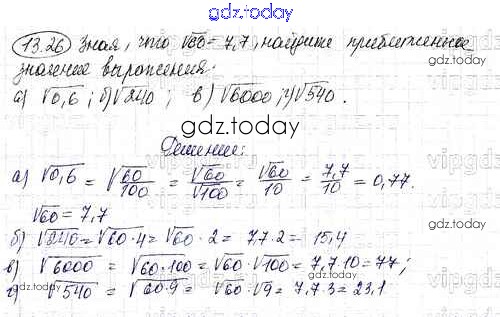 gdz.today
13.26 Зная, что √60 = 7,7, найдите приближенное
значение выражения:
а) √0,6; б) √240; в) √6000; г) √540.
gdz.today
Решение:
а) √0,6 = √60/100 = √60/√100 = √60/10 = 7,7/10 = 0,77.
√60 = 7,7
б) √240 = √60·4 = √60·2 = 7,7·2 = 15,4
в) √6000 = √60·100 = √60·√100 = 7,7·10 = 77;
г) √540 = √60·9 = √60·√9 = 7,7·3 = 23,1
gdz.today